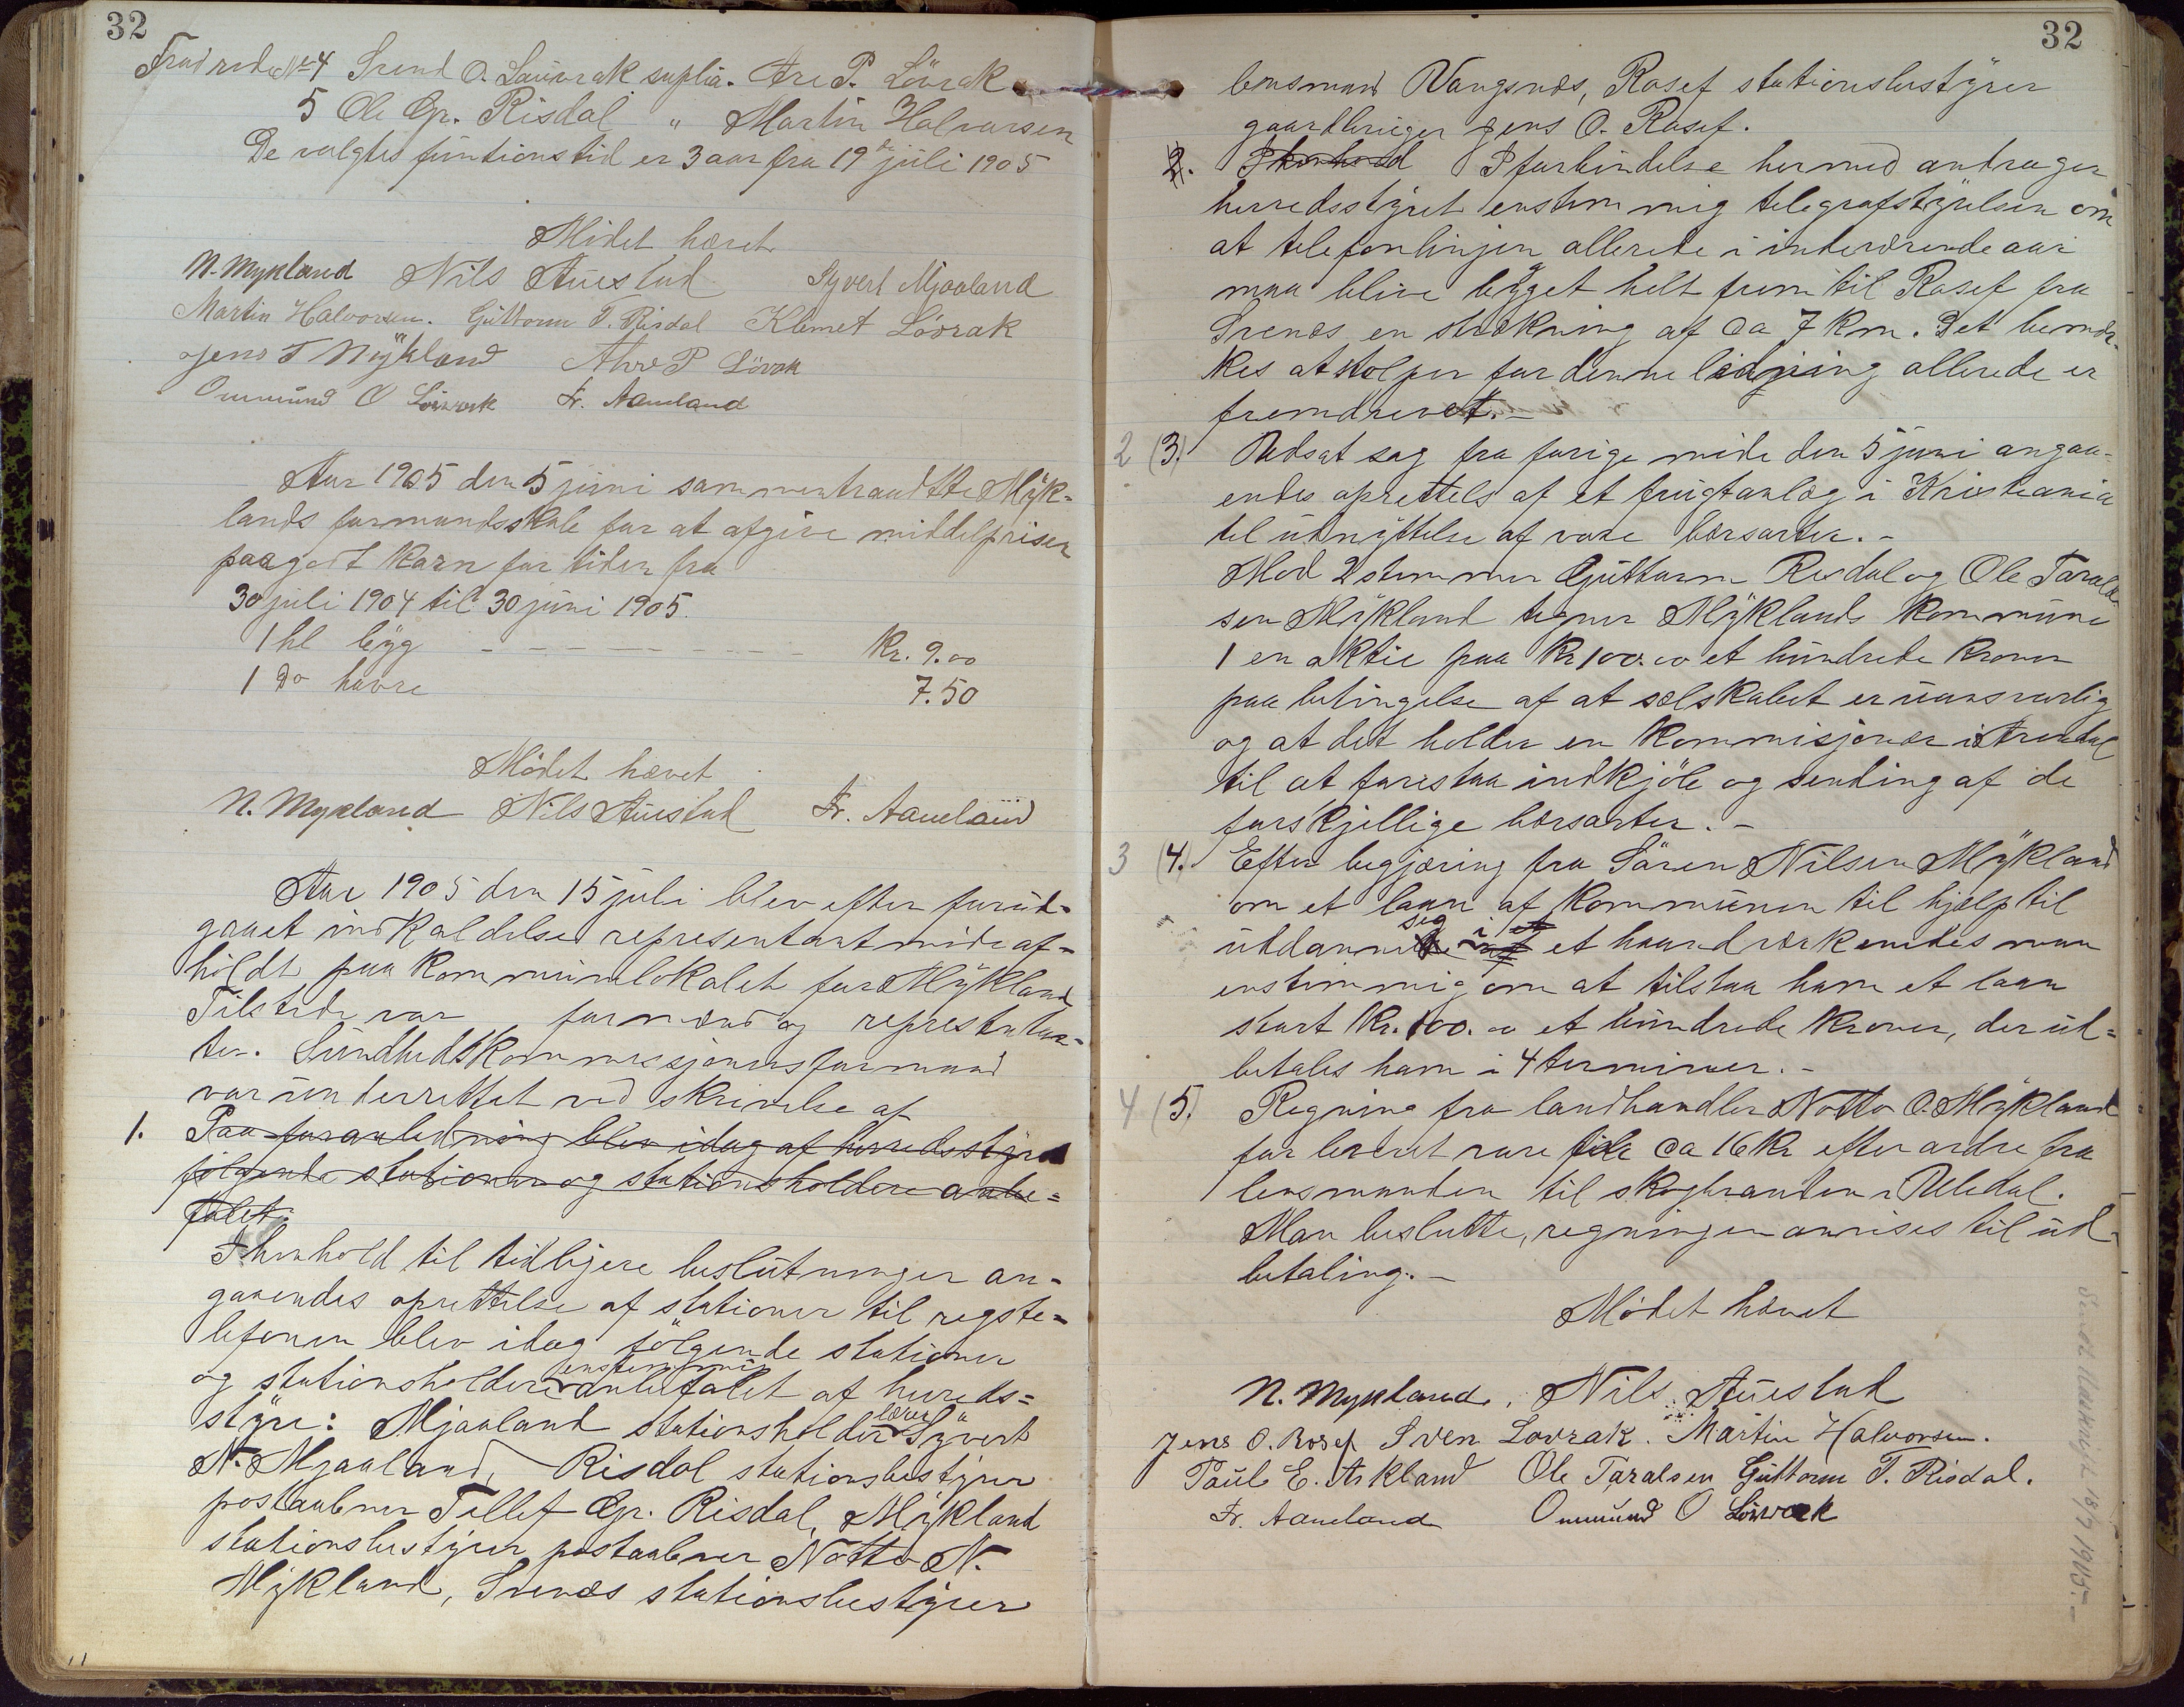 32
Trud rode No 4 Svend O. Lauvrak suplia. Are P. Lövrak
5 Ole Gr. Risdal " Martin Halvorsen
De valgtes funtionstid er 3 aar fra 19de juli 1905
Mødet hævet
N. Mykland Nils Aüestad Syvert Mjaaland
Martin Halvorsen. Guttorm T. Risdal Klemet Lövrak
Jens T Mykland Ahre P Lövrak
Ommund O Lövrak Fr. Aameland
Aar 1905 den 5 juni sammentraadtte Myk=
lands formandsskab for at afgive middelpriser
paa godt korn for tiden fra
30 juli 1904 til 30 juni 1905.
1 hl byg - - - - - - - - - - Kr. 9.00
1 Do havre 7.50
Mødet hævet
N. Mykland Nils Aüestad Fr. Aameland
Aar 1905 den 15 juli blev efter forud=
gaaet indkaldelse representantmøde af=
holdt paa kommunelokalet for Mykland
Tilstede var formænd og representan=
ter. Sundhedskommissjonens formand
var underrettet ved skrivelse af
1. Paa foranledning blev idag af herredsstyret
følgende stationer og stationsholdere anbe=
falet.
I henhold til tidligere beslutninger an=
gaaendes oprettelse af stationer til rigste=
lefonen blev idag følgende stationer
og stationsholdere enstemmig anbefalet af hereds=
styre: Mjaaland stationsholder lærer Syvert
N. Mjaaland, Risdal stationsbestyrer
postaabner Tellef Gr. Risdal, Mykland
stationsbestyrer postaabner Notto N.
Mykland, Svenæs stationsbestyrer
32
lensmand Vangsnæs, Rosef stationsbestyrer
gaardbruger Jens O. Rosef.
2. I henhold I forbindelse hermed andrager
herredsstyret enstemmig telegrafstyrelsen om
at telefonlinjen allerede i inderværende aar
maa blive bygget helt frem til Rosef fra
Svenæs en strækning af ca 7 km. Det bemær=
kes at stolper for denne ledning allerede er
fremdrevet. -
2 (3.) Udsat sag fra forige møde den 5 juni angaa=
endes oprettels af et frugtanlæg i Kristiania
til udnyttelse af vore bærsorter. -
Mod 2 stemmer Guttorm Risdal og Ole Tarald=
sen Mykland tegner Myklands kommune
1 en aktie paa Kr 100.00 et hundrede kroner
paa betingelse af at selskabet er uansvarlig
og at det holder en kommisjonær i Arendal
til at forestaa indkjöb og sending af de
forskjellige bærsorter. -
3 (4.) Efter begjæring fra Sören Nilsen Mykland
om et laan af kommunen til hjælp til
utdanne sig i et haandværk enedes man
enstemmig om at tilstaa ham et laan
stort Kr. 100.00 et hundrede kroner, der ud=
betales ham i 4 terminer. -
4 (5.) Regning fra landhandler Notto O. Mykland
for leveret vare tile ca 16 kr efter ordre fra
lensmanden til skogbranden i Uledal.
Man beslutte, regningen anvises til ud=
betaling. -
Mødet hævet
N. Mykland, Nils Aüestad
Jens O. Rosef Sven Lovrak. Martin Halvorsen.
Paul E. Askland Ole Taralsen Guttorm T. Risdal.
Fr. Aameland Ommund O Lövrak
18/7 1905. -